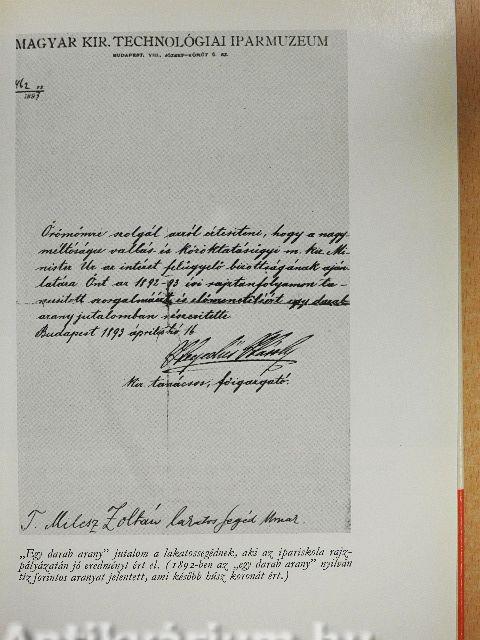 MAGYAR KIR. TECHNOLÓGIAI IPARMUZEUM
BUDAPEST, VIII., JÓZSEF-KÖRÚT 6. SZ.
462 sz
1893
Örömömre szolgál arról értesíteni, hogy a nagy-
méltóságu vallás és közoktatásügyi m. kir. Mi-
nister Ur az intézet felügyelő bizottságának aján-
latára Önt az 1892-93 évi rajztanfolyamon ta-
nusított szorgalmáért és előmeneteléért egy darab
arany jutalomban részesítette
Budapest 1893 április hó 16
Hegedüs Károly
kir. tanácsos, főigazgató.
T. Melcsz Zoltán lakatos segéd Urnak
„Egy darab arany" jutalom a lakatossegédnek, aki az ipariskola rajz-
pályázatán jó eredményt ért el. (1892-ben az „egy darab arany" nyilván
tíz forintos aranyat jelentett, ami később húsz koronát ért.)
Antikvárium.hu